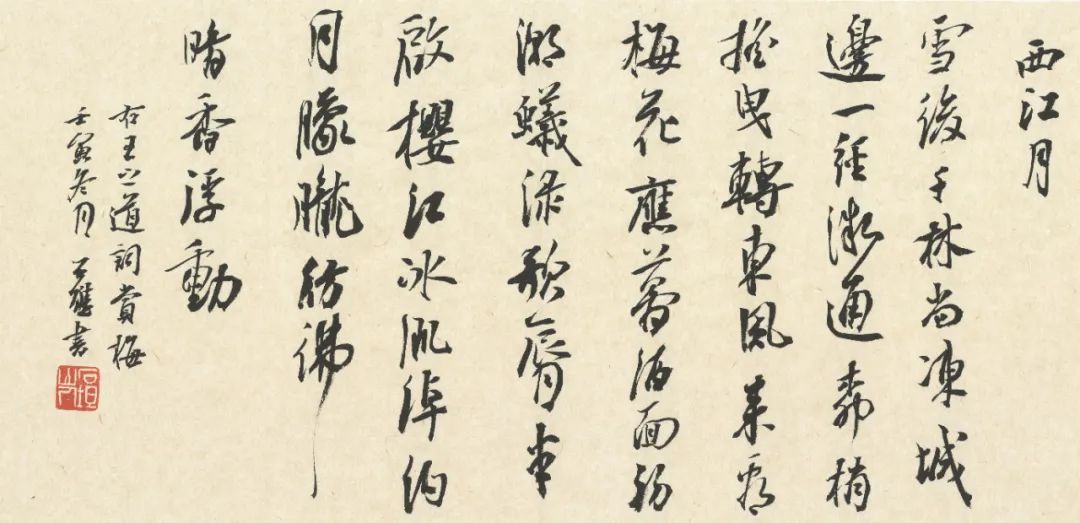 西江月
雪後千林尚凍城
邊一徑微通柳梢
搖曳轉東風來看
梅花應夢酒面初
潮蟻淥歌脣半
啟櫻紅冰肌淖約
月朦朧彷彿
暗香浮動
右王之道詞賞梅
壬寅冬月書